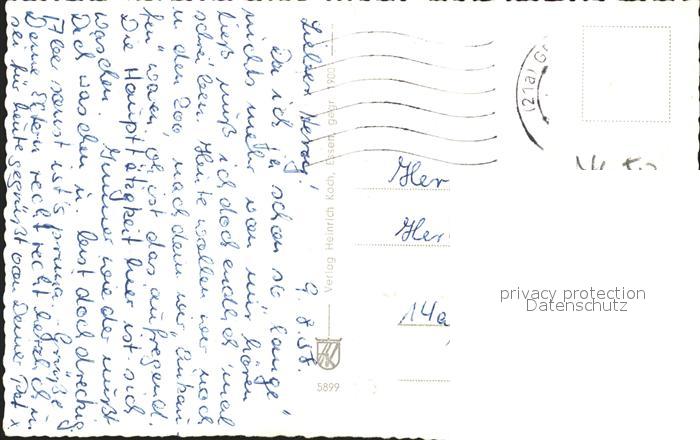 9.8.58.
Lieber Herrr!
Da ich schon so lange
nichts mehr von mir hören
ließ, muß ich doch endlich 'mal
schreiben. Heute wollen wir noch
in den Zoo, nachdem wir "Einkau
fen" waren. Oh, ist das aufregend.
Die Haupttätigkeit hier ist sich
waschen. Immer wieder mußt
Dich waschen u. bist doch dreckig.
Aber sonst ist's prima. Grüße
Deine Eltern recht recht herzlich u.
sei für heute gegrüßt von Deiner
Verlag Heinrich Koch, Essen, gegr. 1900
5899
(21a)
Herr
Her
14a
privacy protection
Datenschutz